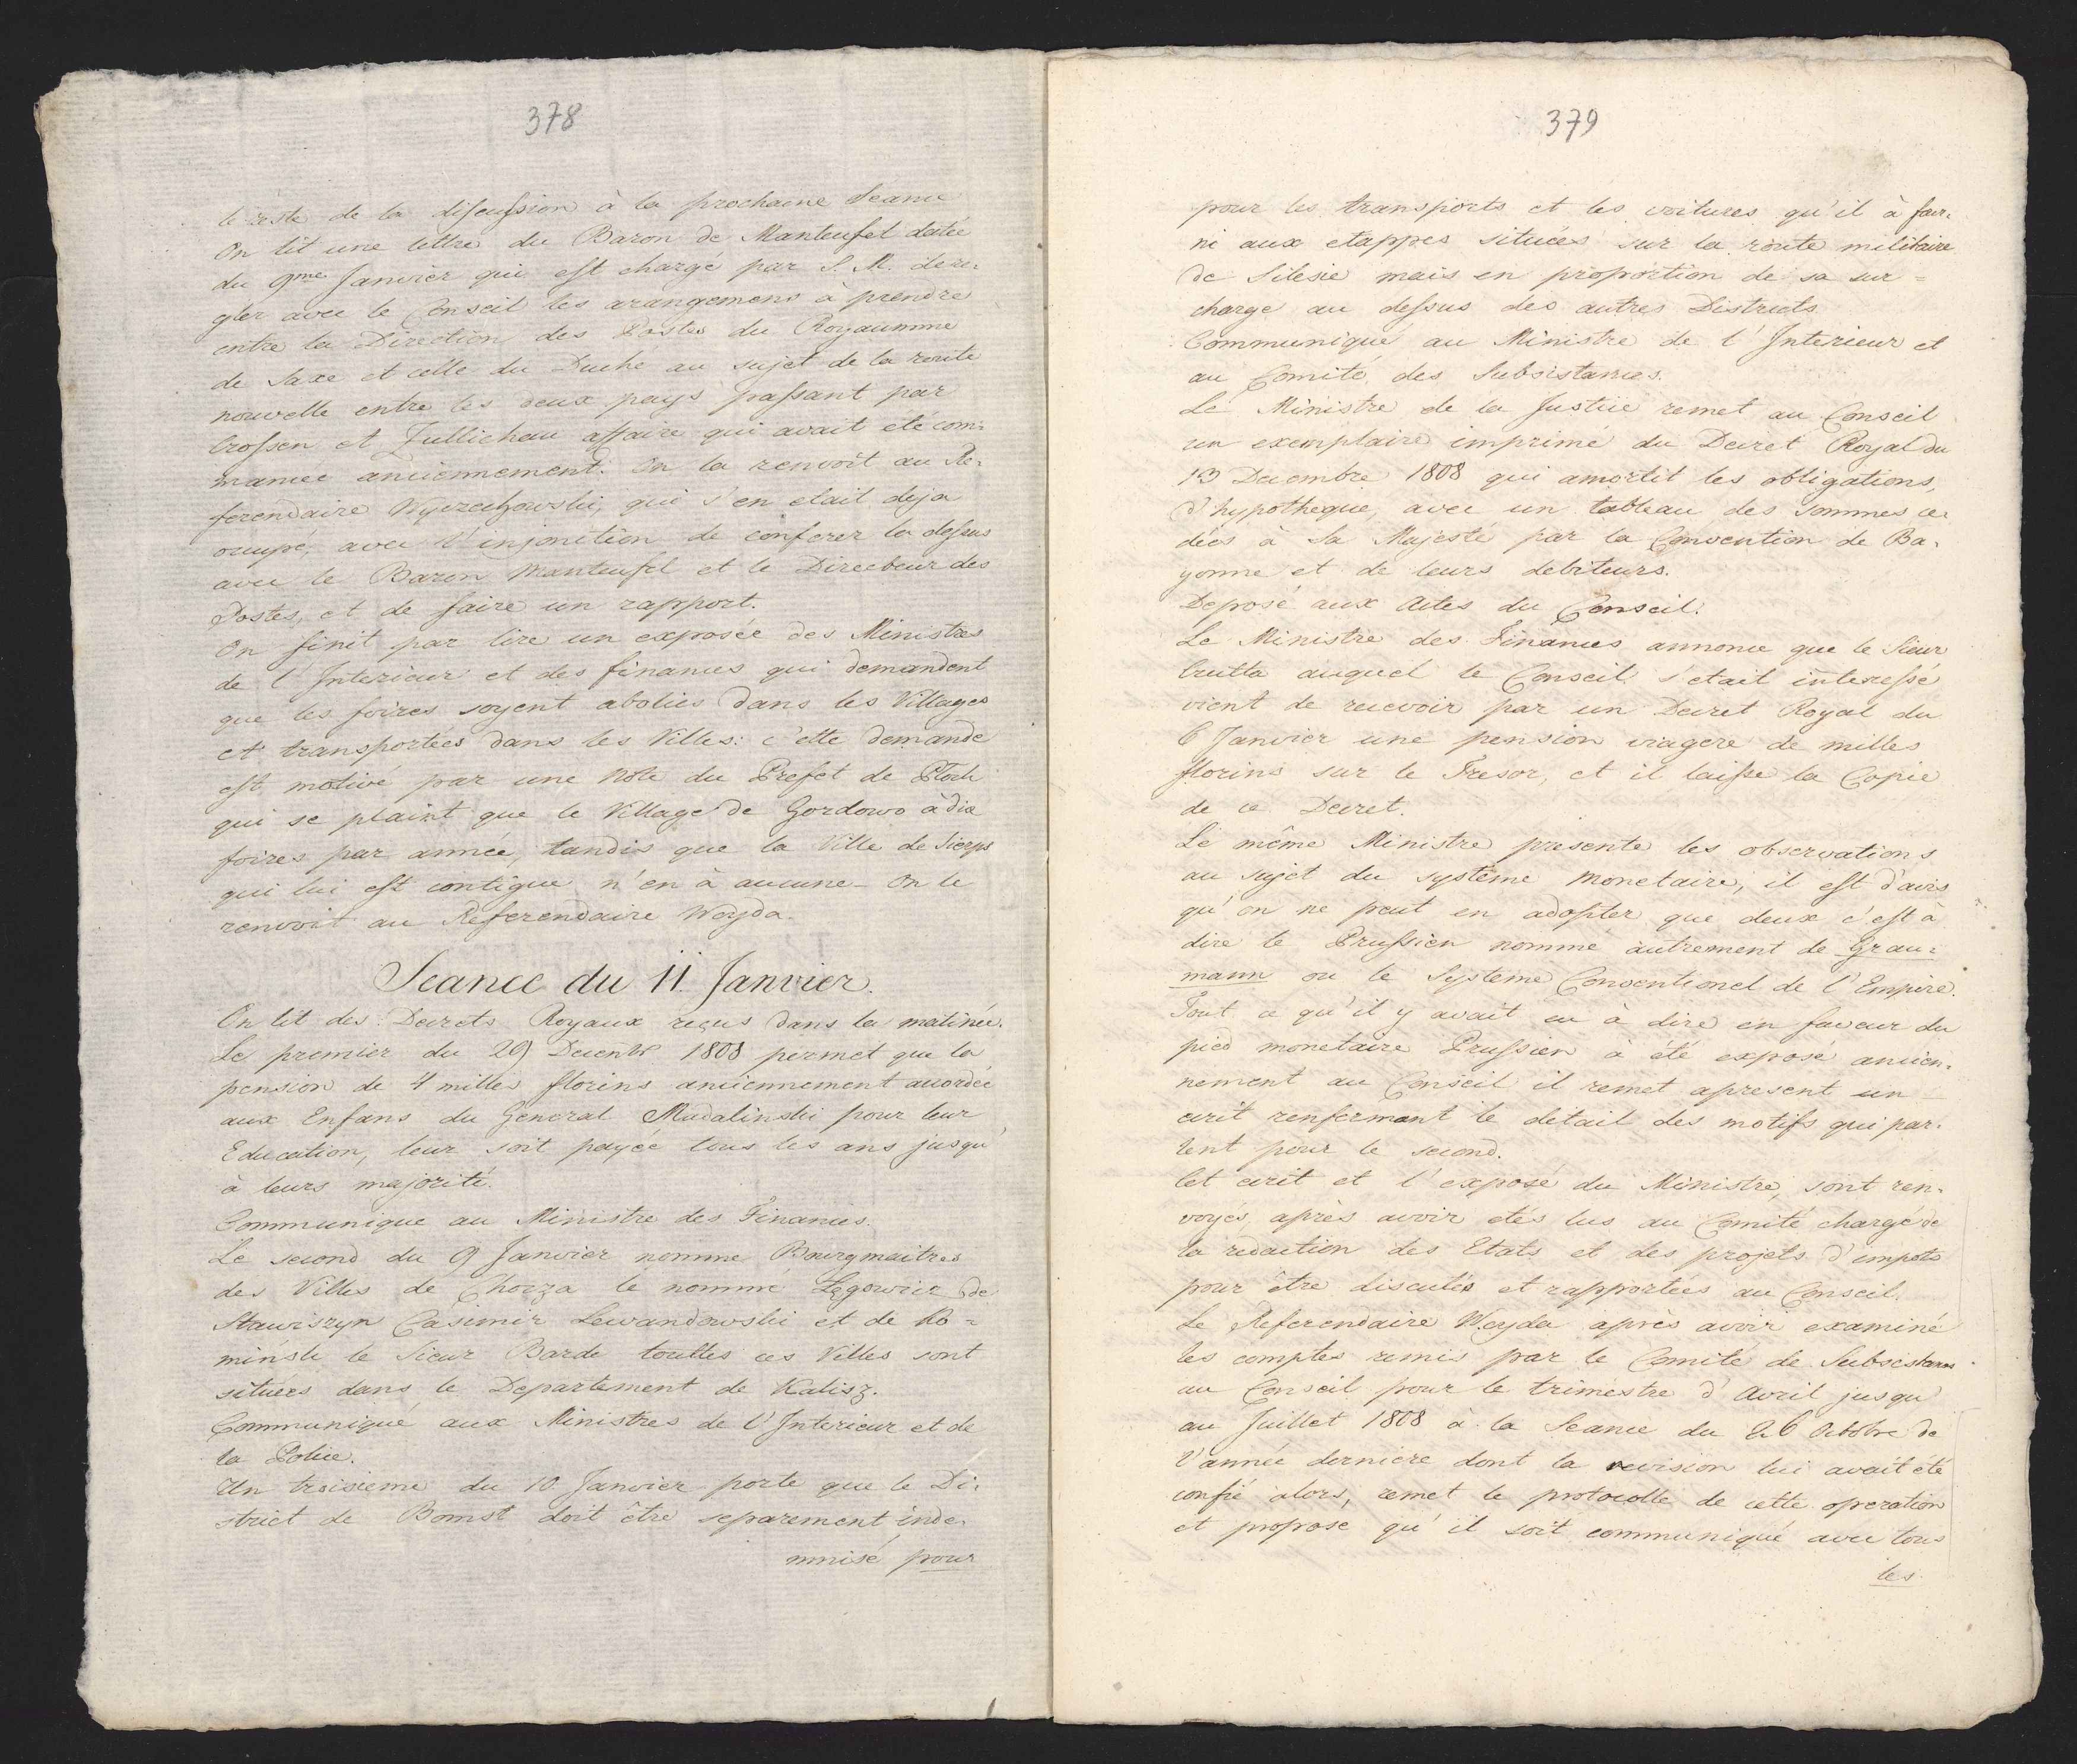 378
le reste de la discussion à la prochaine Seance
On lit une lettre du Baron de Manteufel datée
du 9me Janvier qui est chargé par S. M. de re-
gler avec le Conseil les arangemens à prendre
entre la Direction des Postes du Royaumme
de Saxe et celle du Duche au sujet de la route
nouvelle entre les deux pays passant par
Crossen et Zullichau affaire qui avait été com-
mancée anciennement. On la renvoit au Re-
ferendaire Wyczechowski, qui s'en etait deja
occupé, avec l'injonction de conferer la dessus
avec le Baron Manteufel et le Directeur des
Postes, et de faire un rapport.
On finit par lire un exposée des Ministres
de l'Interieur et des finances qui demandent
que les foires soyent abolies dans les Villages
et transportées dans les Villes: c'ette demande
est motivé par une Note du Prefet de Plock
qui se plaint que le Village de Gordowo à dix
foires par année, tandis que la Ville de Sierps
qui lui est contigue n'en à aucune - On le
renvoit au Referendaire Woyda.
Seance du 11. Janvier.
On lit des Decrets Royaux reçus dans la matinée.
Le premier du 29 Decembr 1808 permet que la
pension de 4 milles florins anciennement accordée
aux Enfans du General Madalinski pour leur
Education, leur soit payée tous les ans jusqu'
à leurs majorité.
Communique au Ministre des Finances.
Le second du 9 Janvier nomme Bourgmaitres
des Villes de Chocza le nommé Legowicz de
Stawiszyn Casimir Lewandowski et de Ko-
minsk le Sieur Barde touttes ces Villes sont
situées dans le Departement de Kalisz.
Communiqué aux Ministres de l'Interieur et de
la Police.
Un troisieme du 10 Janvier porte que le Di-
strict de Bomst doit être separement inde-
mnisé pour
379
pour les transports et les voitures qu'il à four-
ni aux etappes situées sur la route militaire
de Silesie mais en proportion de sa sur=
charge au dessus des autres Districts
Communiqué au Ministre de l'Interieur et
au Comité des Subsistances.
Le Ministre de la Justice remet au Conseil
un exemplaire imprimé du Decret Royal du
13 Decembre 1808 qui amortit les obligations,
d'hypotheque, avec un tableau des sommes ce-
dées à Sa Majesté par la Convention de Ba-
yonne et de leurs debiteurs.
Deposé aux Actes du Conseil.
Le Ministre des Finances annonce que le Sieur
Crutta auquel le Conseil s'etait interessé
vient de recevoir par un Decret Royal du
6 Janvier une pension viagere de milles
florins sur le Tresor, et il laisse la Copie
de ce Decret.
Le même Ministre presente les observations
au sujet du systeme monetaire, il est d'avis
qu'on ne peut en adopter que deux c'est à
dire le Prussien nommé autrement de Grau=
mann ou le Systeme Conventionel de l'Empire.
Tout ce qu'il y avait eu à dire en faveur du
pied monetaire Prussien à été exposé ancien-
nement au Conseil il remet apresent un
ecrit renfermant le detail des motifs qui par-
lent pour le second.
Cet ecrit et l'exposé du Ministre, sont ren-
voyés, après avoir etés lus au Comité chargé de
la redaction des Etats et des projets d'impots
pour être discutés et rapportées au Conseil.
Le Referendaire Woyda après avoir examiné
les comptes remis par le Comité de Subsistances
au Conseil pour le trimestre d'Avril jusqu'
au Juillet 1808 à la Seance du 26 Octobre de
l'année derniere dont la revision lui avait été
confié alors, remet le protocolle de cette operation
et propose qu'il soit communiqué avec tous
les